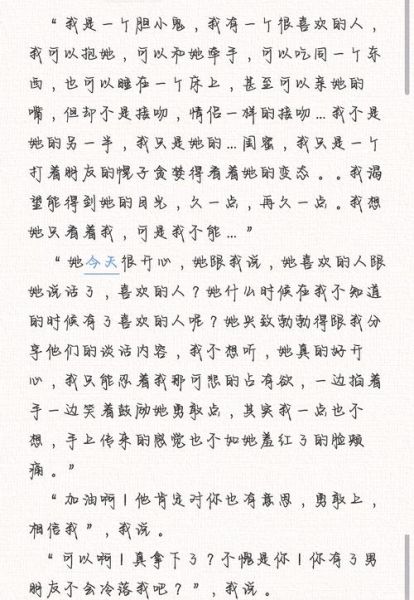 “我是一个胆小鬼，我有一个很喜欢的人，
我可以抱她，可以和她牵手，可以吃同一个东
西，也可以睡在一个床上，甚至可以亲她的
嘴，但却不是接吻，情侣一样的接吻…我不是
她的另一半，我只是她的…闺蜜，我只是一个
打着朋友的幌子贪婪得看着她的变态。。我渴
望能得到她的目光，久一点，再久一点。我想
她只看着我，可是我不能…”
“她今天很开心，她跟我说，她喜欢的人跟
她说话了，喜欢的人？她什么时候在我不知道
的时候有了喜欢的人呢？她兴致勃勃得跟我分
享他们的谈话内容，我不想听，她真的好开
心，我只能忍着我那可悲的占有欲，一边拍着
手一边笑着鼓励她勇敢点，其实我一点也不
想，手上传来的感觉也不如她羞红了的脸颊
痛。”
“加油啊！他肯定对你也有意思，勇敢上，
相信我”，我说。
“可以啊！真拿下了？不愧是你！你有了男
朋友不会冷落我吧？”，我说。